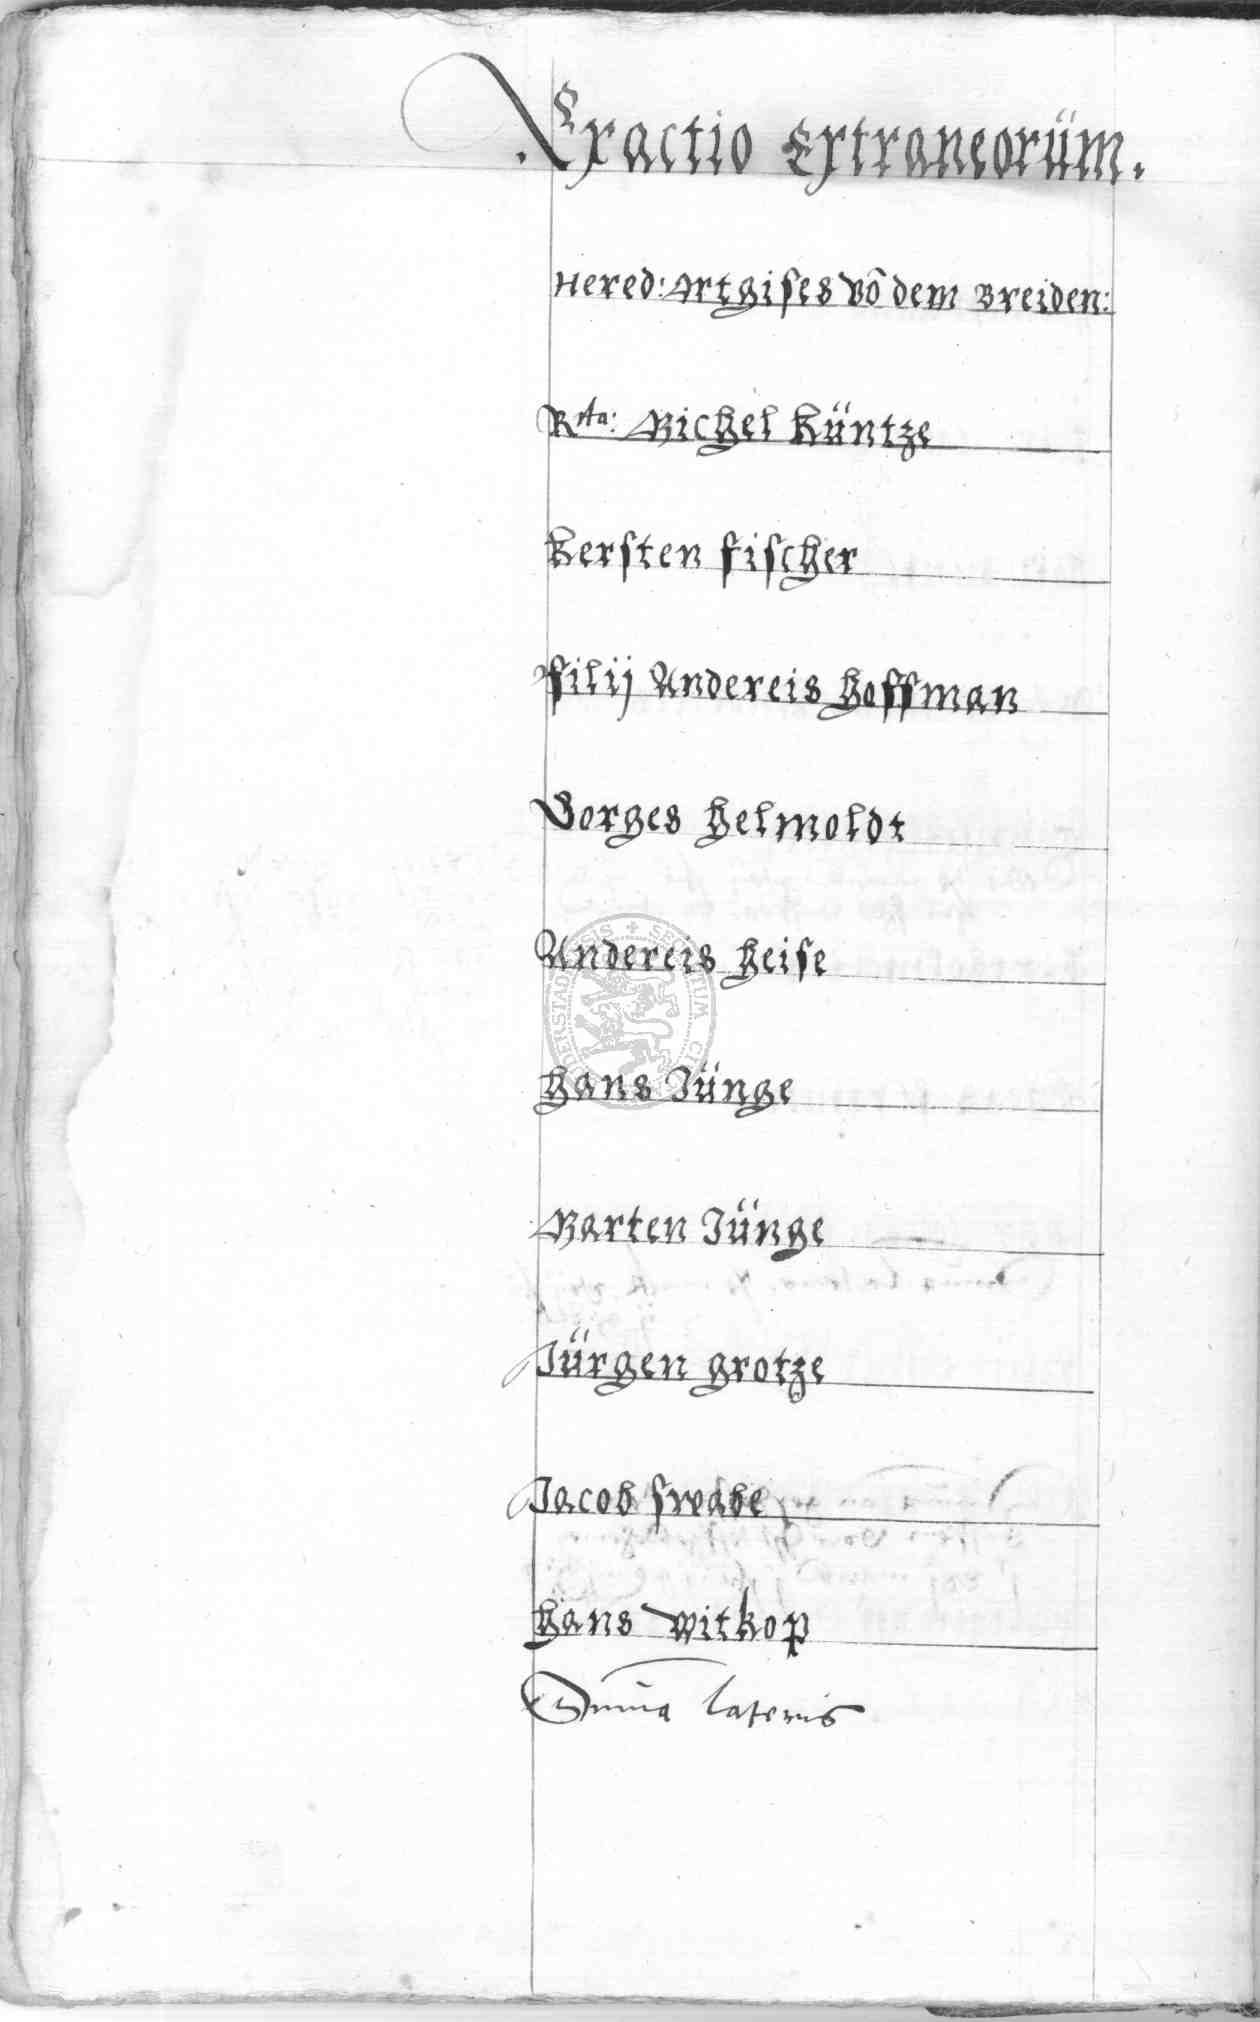 Exactio Extraneorüm.
Hered: Artgises võ dem Breiden:
Rta: Michel Küntze
Kersten fischer
filij Andereis Hoffman
Borges Helmoldt
Andereis Heise
Hans Jünge
Marten Jünge
Jürgen grotze
Jacob swabe
Hans witkop
Suma lateris